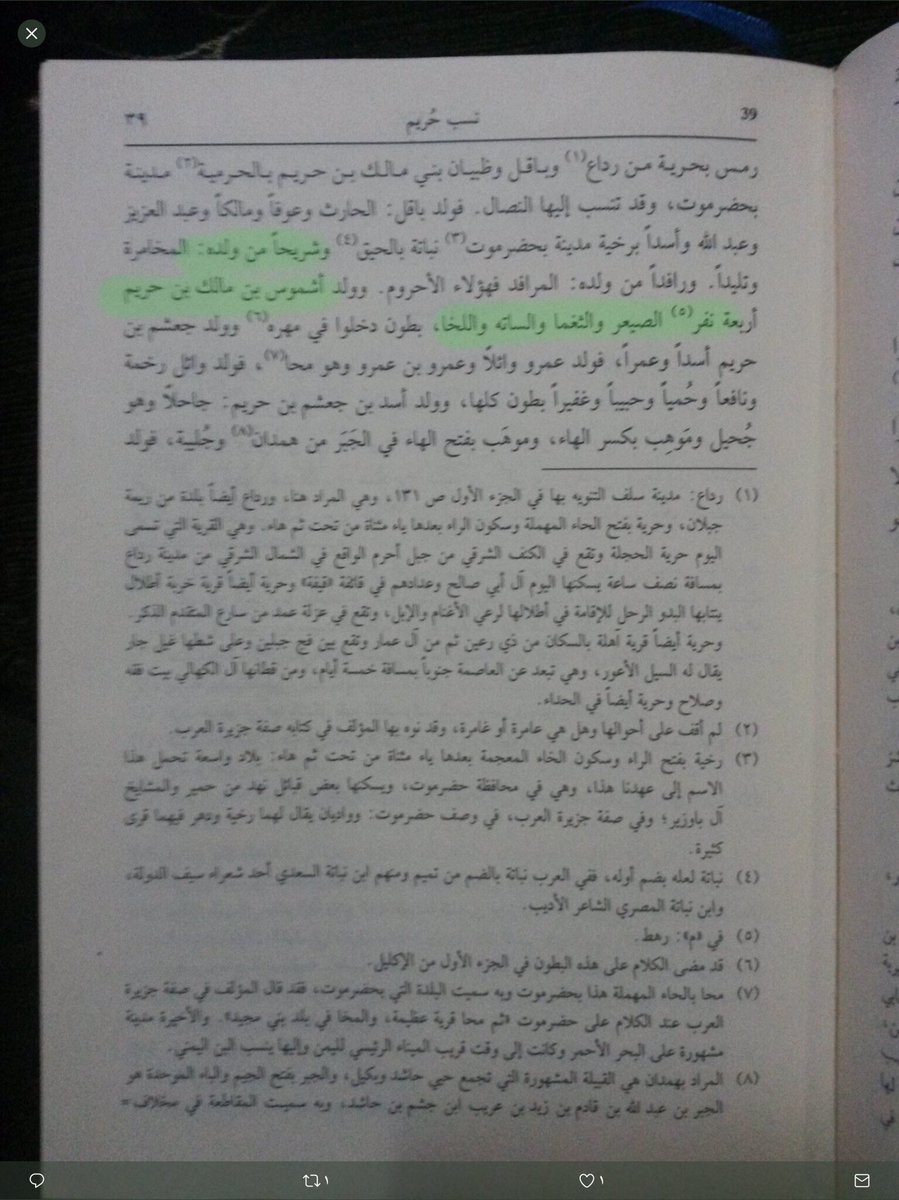 39 نسب حُريم ٣٩
رمس بحرية من رداع(١) وباقل وظبيان بني مالك بن حريم بالحرمية(٢) مدينة
بحضرموت، وقد تنتسب إليها النصال. فولد باقل: الحارث وعوفاً ومالكاً وعبد العزيز
وعبد الله وأسداً برخية مدينة بحضرموت(٣) نباتة بالحيق(٤) وشريحاً من ولده: المخامرة
وتليداً. ورافداً من ولده: المرافد فهؤلاء الأحروم. وولد أشموس بن مالك بن حريم
أربعة نفر(٥) الصيعر والثغما والساته واللخا، بطون دخلوا في مهره(٦) وولد جعشم بن
حريم أسداً وعمراً، فولد عمرو وائلاً وعمرو بن عمرو وهو محا(٧)، فولد وائل رخمة
ونافعاً وحُمياً وحبيباً وغفيراً بطون كلها، وولد أسد بن جعشم بن حريم: جاحلاً وهو
جُحيل ومَوهِب بكسر الهاء، وموهَب بفتح الهاء في الجَبَر من همدان(٨) وجُليبة، فولد
(١) رداع: مدينة سلف التنويه بها في الجزء الأول ص ١٣١، وهي المراد هنا، ورداع أيضاً بلدة من ريمة
جبلان، وحرية بفتح الحاء المهملة وسكون الراء بعدها ياء مثناة من تحت ثم هاء. وهي القرية التي تسمى
اليوم حرية الحجلة وتقع في الكنف الشرقي من جبل أحرم الواقع في الشمال الشرقي من مدينة رداع
بمسافة نصف ساعة يسكنها اليوم آل أبي صالح وعدادهم في قائفة «قيفة» وحرية أيضاً قرية خربة أطلال
ينتابها البدو الرحل للإقامة في أطلالها لرعي الأغنام والإبل، وتقع في عزلة عمد من سارع المتقدم الذكر.
وحرية أيضاً قرية آهلة بالسكان من ذي رعين ثم من آل عمار وتقع بين فج جبلين وعلى شطها غيل جار
يقال له السيل الأعور، وهي تبعد عن العاصمة جنوباً بمسافة خمسة أيام، ومن قطانها آل الكهالي بيت فقه
وصلاح وحرية أيضاً في الحداء.
(٢) لم أقف على أحوالها وهل هي عامرة أو غامرة، وقد نوه بها المؤلف في كتابه صفة جزيرة العرب.
(٣) رخية بفتح الراء وسكون الخاء المعجمة بعدها ياء مثناة من تحت ثم هاء: بلاد واسعة تحمل هذا
الاسم إلى عهدنا هذا، وهي في محافظة حضرموت، ويسكنها بعض قبائل نهد من حمير والمشايخ
آل باوزير؛ وفي صفة جزيرة العرب، في وصف حضرموت: وواديان يقال لهما رخية ودهر فيهما قرى
كثيرة.
(٤) نباتة لعله بضم أوله، ففي العرب نباتة بالضم من تميم ومنهم ابن نباتة السعدي أحد شعراء سيف الدولة،
وابن نباتة المصري الشاعر الأديب.
(٥) في «م»: رهط.
(٦) قد مضى الكلام على هذه البطون في الجزء الأول من الإكليل.
(٧) محا بالحاء المهملة هذا بحضرموت وبه سميت البلدة التي بحضرموت، فقد قال المؤلف في صفة جزيرة
العرب عند الكلام على حضرموت «ثم محا قرية عظيمة، والمخا في بلد بني مجيد». والأخيرة مدينة
مشهورة على البحر الأحمر وكانت إلى وقت قريب الميناء الرئيسي لليمن وإليها ينسب البن اليمني.
(٨) المراد بهمدان هي القبيلة المشهورة التي تجمع حيي حاشد وبكيل، والجبر بفتح الجيم والباء الموحدة هو
الجبر بن عبد الله بن قادم بن زيد بن عريب ابن جشم بن حاشد، وبه سميت المقاطعة في مخلاف=
١
١